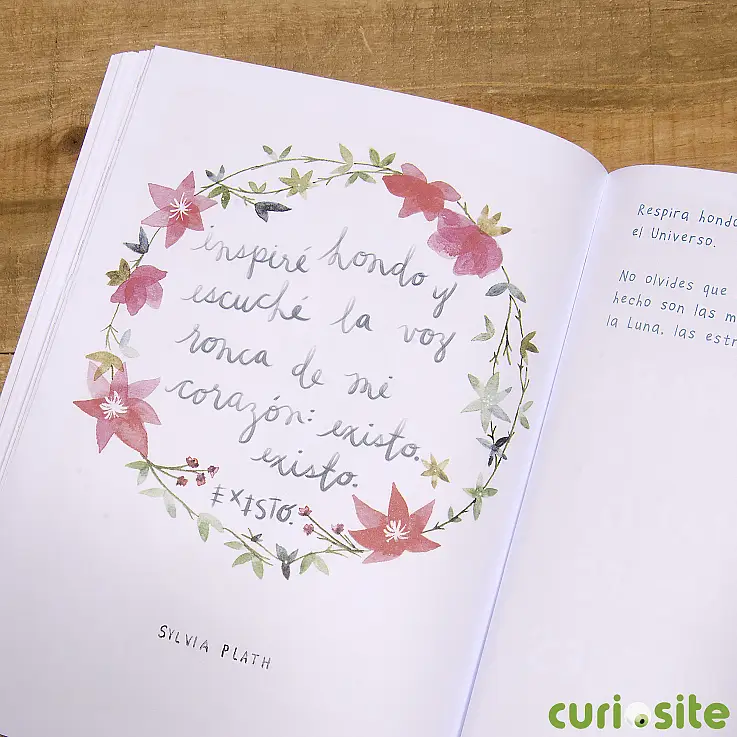 inspiré hondo y
escuché la voz
ronca de mi
corazón: existo.
existo.
EXISTO.
SYLVIA PLATH
Respira hondo
el Universo.
No olvides que
hecho son las
la Luna, las
curiosite